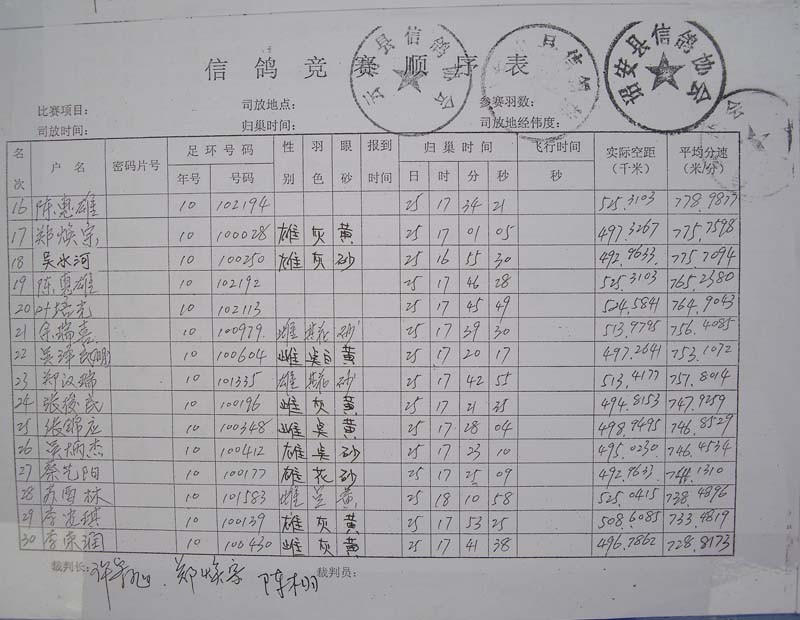 信鸽竞赛顺序表
诏安县信鸽协会
比赛项目: 司放地点: 参赛羽数:
司放时间: 归巢时间: 司放地经纬度:
名次 户名 密码片号 足环号码 性别 羽色 眼砂 报到时间 归巢时间 飞行时间 实际空距(千米) 平均分速(米/分)
年号 号码 日 时 分 秒 秒
16 陈惠雄 10 102194 25 17 34 21 525.3103 778.9877
17 郑焕宗 10 100028 雄 灰 黄 25 17 01 05 497.3267 775.7598
18 吴水河 10 100250 雄 灰 砂 25 16 55 30 492.9633 775.7094
19 陈惠雄 10 102192 25 17 46 28 525.3103 765.2380
20 10 102113 25 17 45 49 524.5841 764.9043
21 余瑞喜 10 100979 雌 砂 25 17 39 30 513.9795 756.4085
22 10 100604 雌 黄 25 17 20 17 497.2641 753.1072
23 郑汉瑞 10 101335 雄 砂 25 17 42 55 513.4177 751.8014
24 张俊民 10 100196 雌 灰 黄 25 17 21 35 494.8153 747.9259
25 10 100348 雌 吴 黄 25 17 28 04 498.9495 746.8529
26 吴炳杰 10 100412 雄 吴 砂 25 17 23 10 495.0230 746.4534
27 蔡芝阳 10 100177 雄 花 砂 25 17 25 09 492.9633
28 林 10 101583 雌 黄 25 18 10 58 525.0415 738.4896
29 李 琪 10 100139 雄 灰 黄 25 17 53 25 508.6085 733.4819
30 李荣润 10 100430 雌 灰 黄 25 17 41 38 496.7862 728.8173
裁判长: 郑焕宗 裁判员: